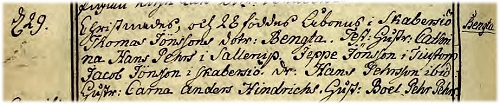 D. 29.
Christnades, och 28 föddes Urbanus i Skabersiö
Thomas Jönssons dotr: Bengta. Tes: Gustr: Cathri
na Hans Pehrs i Sallerup. Jeppe Jönson i
Jacob Jönson i Skabersiö. Dr: Hans Pehrsson ibid:
Gustr: Carna Anders Hindrichs. Gust: Boel Pehr Pehrs
Bengta